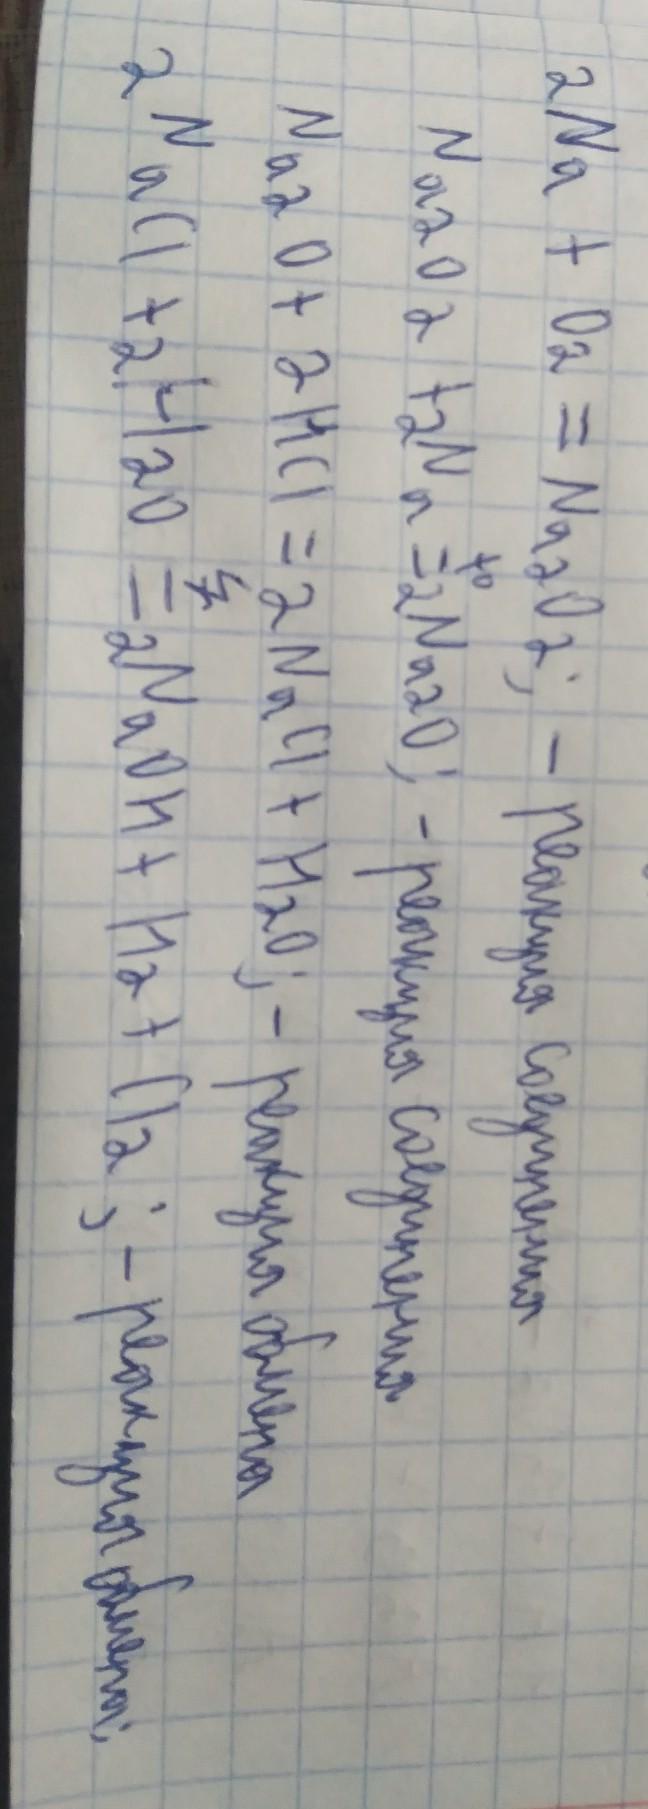 2Na + O2 = Na2O2; - реакция соединения
Na2O2 +2Na =t° 2Na2O; - реакция соединения
Na2O + 2HCl = 2NaCl + H2O; - реакция обмена
2NaCl + 2H2O =↯ 2NaOH + H2 + Cl2; - реакция обмена;